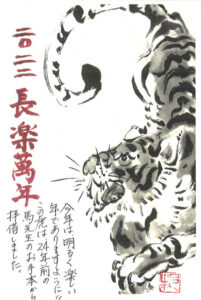 二〇二二
長楽萬年
今年は明るく楽しい
年でありますように!!
この虎は24年前の
馬先生のお手本から
拝借しました。